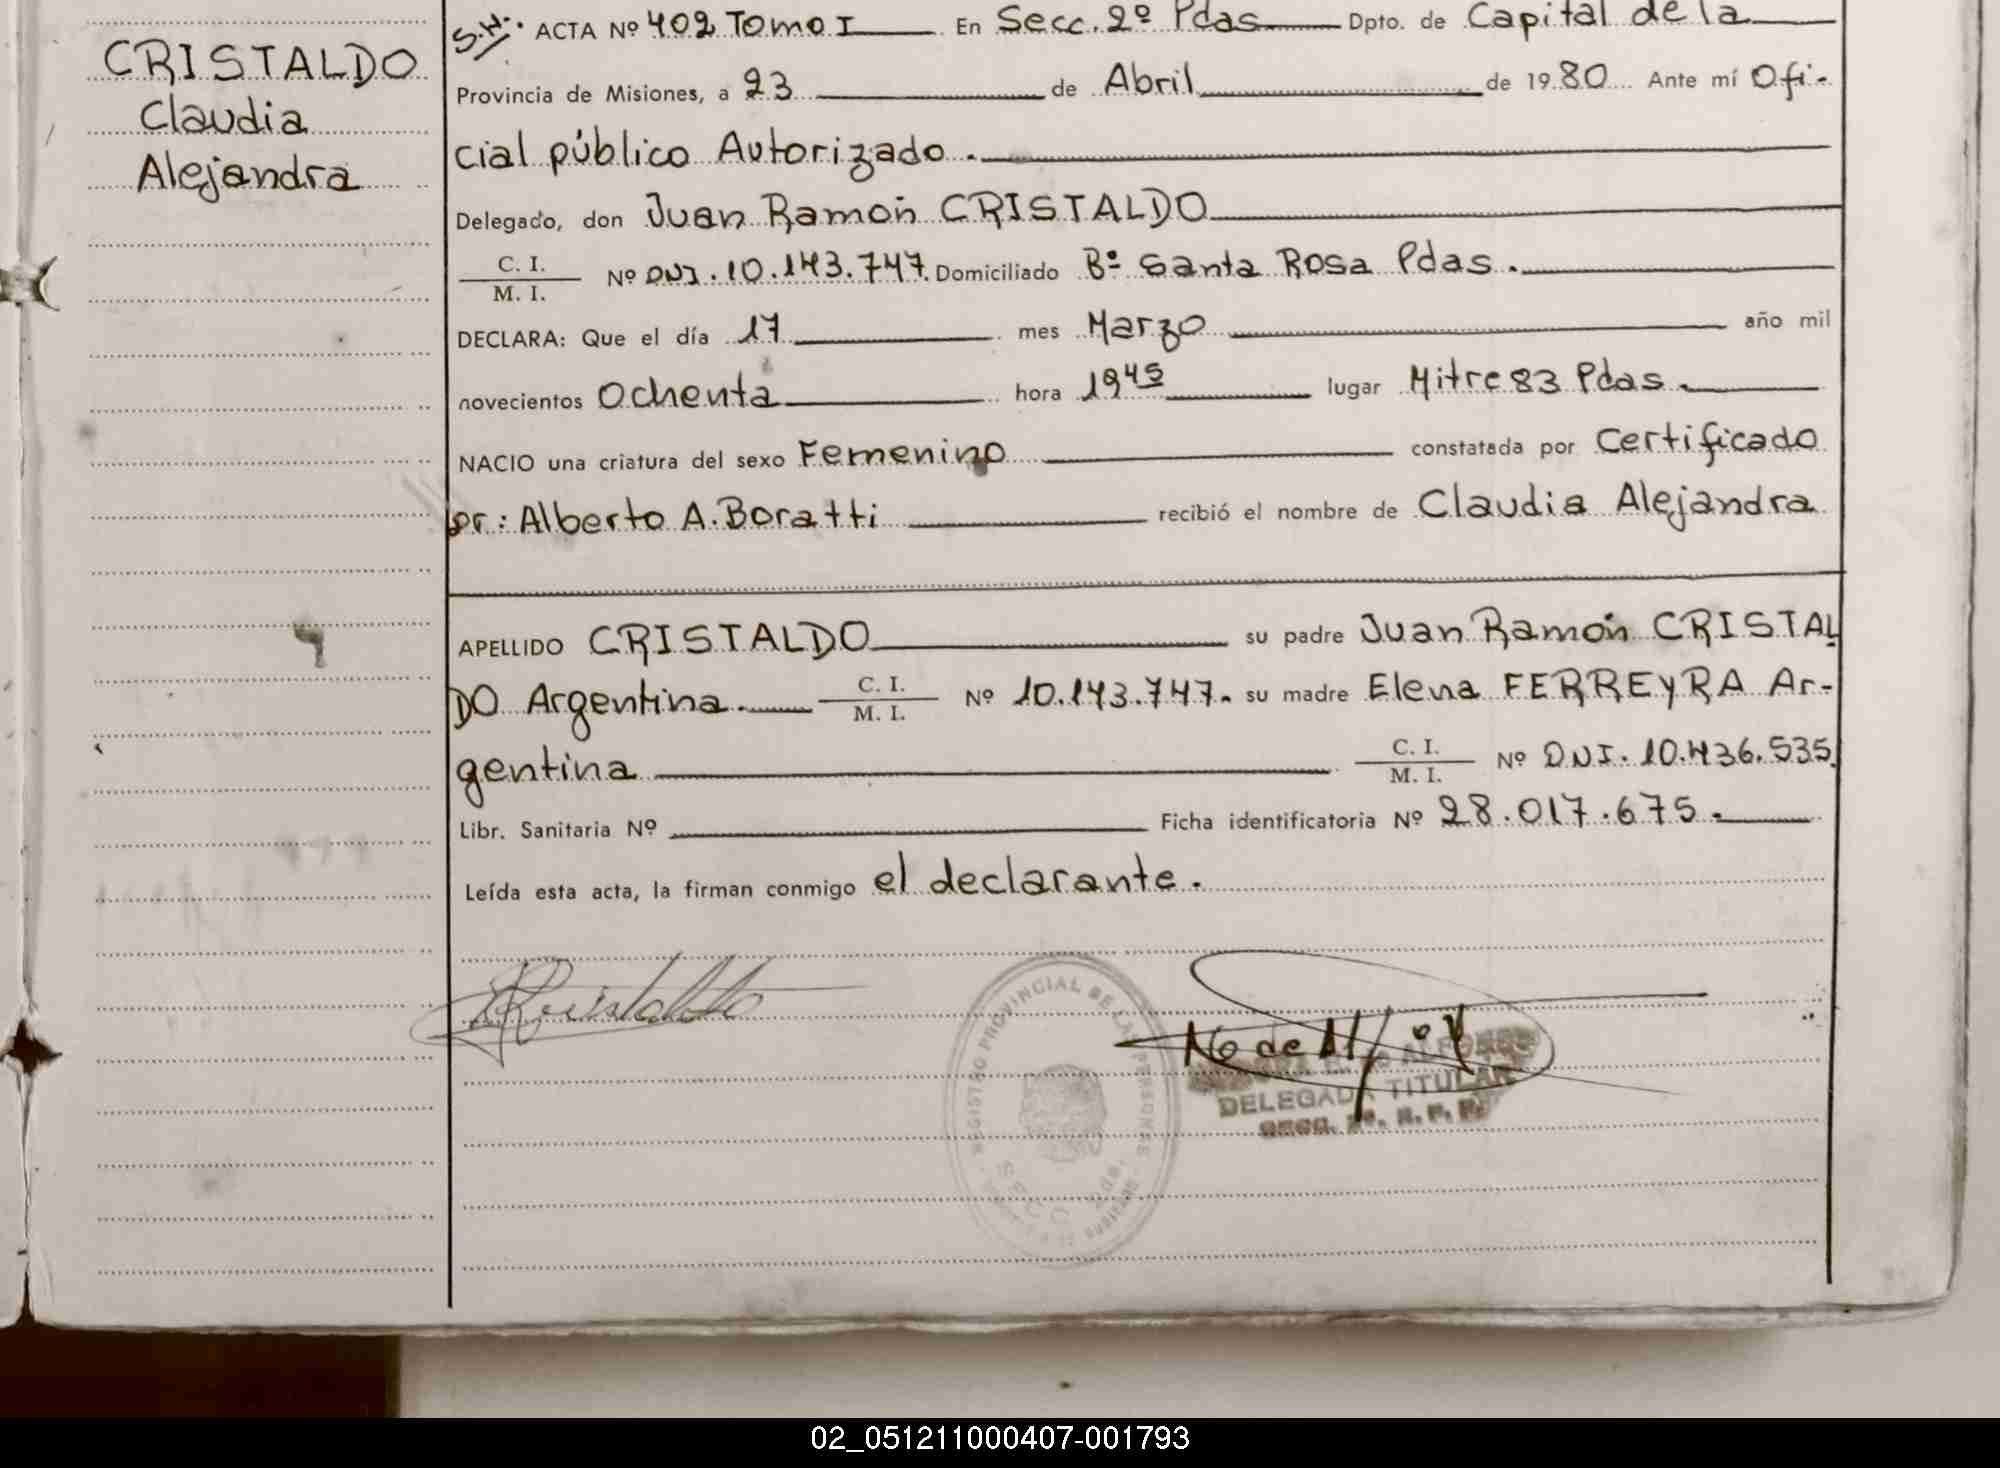 CRISTALDO
Claudia
Alejandra
S.H. ACTA Nº 402 Tomo I En Secc. 2º Pdas Dpto. de Capital de la
Provincia de Misiones, a 23 de Abril de 1980 Ante mí Ofi-
cial público Autorizado.
Delegado, don Juan Ramón CRISTALDO
C. I.
M. I. Nº DNI. 10.143.747. Domiciliado Bº Santa Rosa Pdas.
DECLARA: Que el día 17 mes Marzo año mil
novecientos Ochenta hora 1945 lugar Mitre 83 Pdas.
NACIO una criatura del sexo Femenino constatada por Certificado
Dr.: Alberto A. Boratti recibió el nombre de Claudia Alejandra
APELLIDO CRISTALDO su padre Juan Ramón CRISTAL
DO Argentina. C. I. M. I. Nº 10.143.747. su madre Elena FERREYRA Ar-
gentina C. I. M. I. Nº DNI. 10.436.535.
Libr. Sanitaria Nº Ficha identificatoria Nº 28.017.675.
Leída esta acta, la firman conmigo el declarante.
Cristaldo
REGISTRO PROVINCIAL DE LAS PERSONAS
SECC. 2da.
DELEGADA TITULAR
02_051211000407-001793